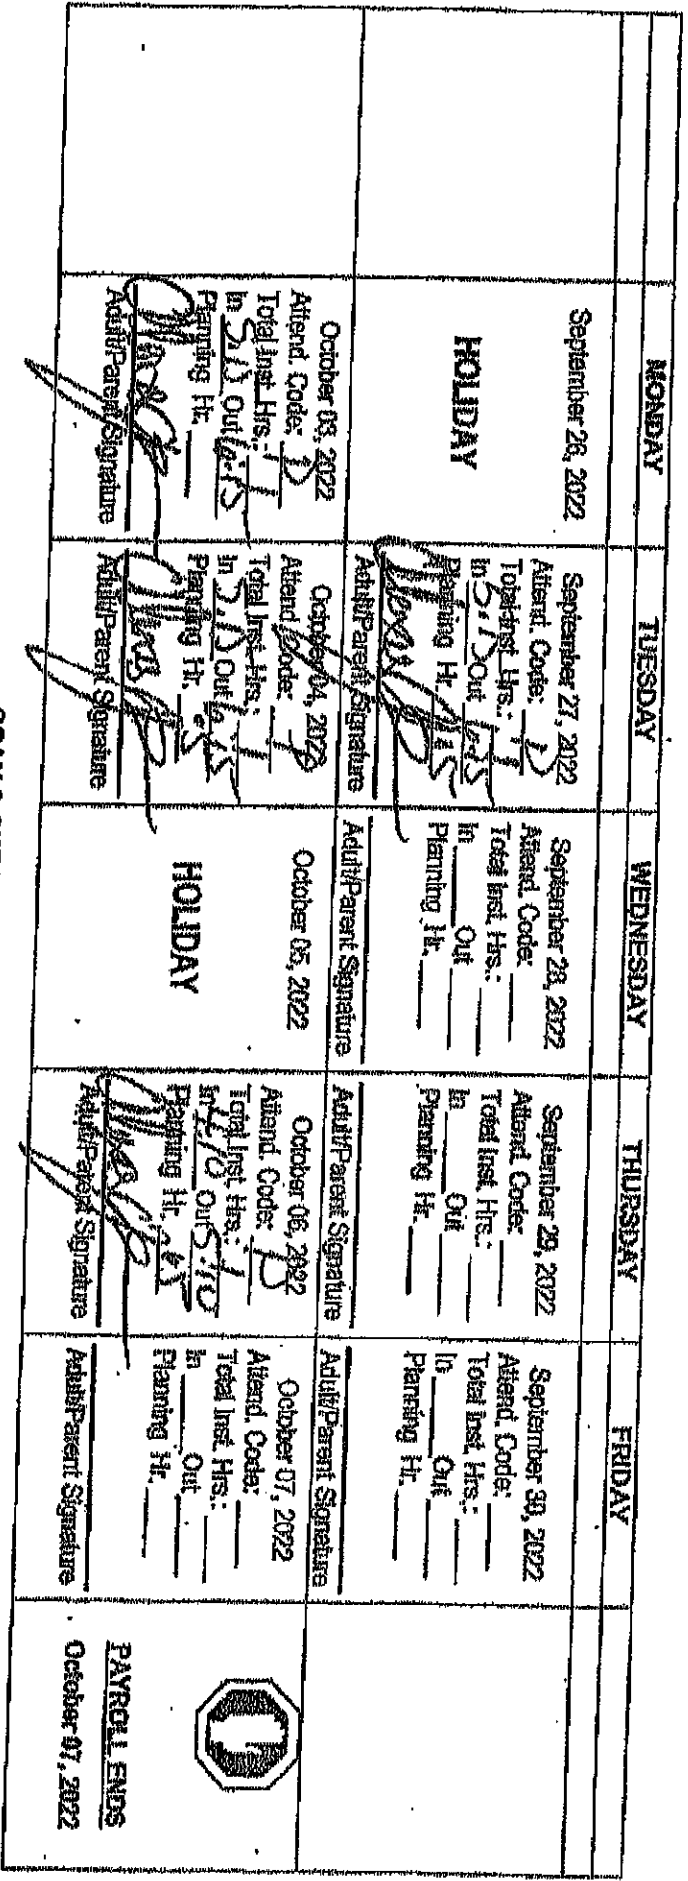 MONDAY
TUESDAY
WEDNESDAY
THURSDAY
FRIDAY
September 26, 2022
HOLIDAY
September 27, 2022
Attend. Code: P
Total Inst. Hrs.: 1
In 5:15 Out 6:15
Planning Hr.
Adult/Parent Signature
September 28, 2022
Attend. Code:
Total Inst. Hrs.:
In Out
Planning Hr.
Adult/Parent Signature
September 29, 2022
Attend. Code:
Total Inst. Hrs.:
In Out
Planning Hr.
Adult/Parent Signature
September 30, 2022
Attend. Code:
Total Inst. Hrs.:
In Out
Planning Hr.
Adult/Parent Signature
October 03, 2022
Attend. Code: P
Total Inst. Hrs.: 1
In 5:15 Out 6:15
Planning Hr.
Adult/Parent Signature
October 04, 2022
Attend. Code: P
Total Inst. Hrs.: 1
In 5:15 Out 6:15
Planning Hr.
Adult/Parent Signature
October 05, 2022
HOLIDAY
October 06, 2022
Attend. Code: P
Total Inst. Hrs.: 1
In 4:10 Out 5:10
Planning Hr.
Adult/Parent Signature
October 07, 2022
Attend. Code:
Total Inst. Hrs.:
In Out
Planning Hr.
Adult/Parent Signature
PAYROLL ENDS
October 07, 2022